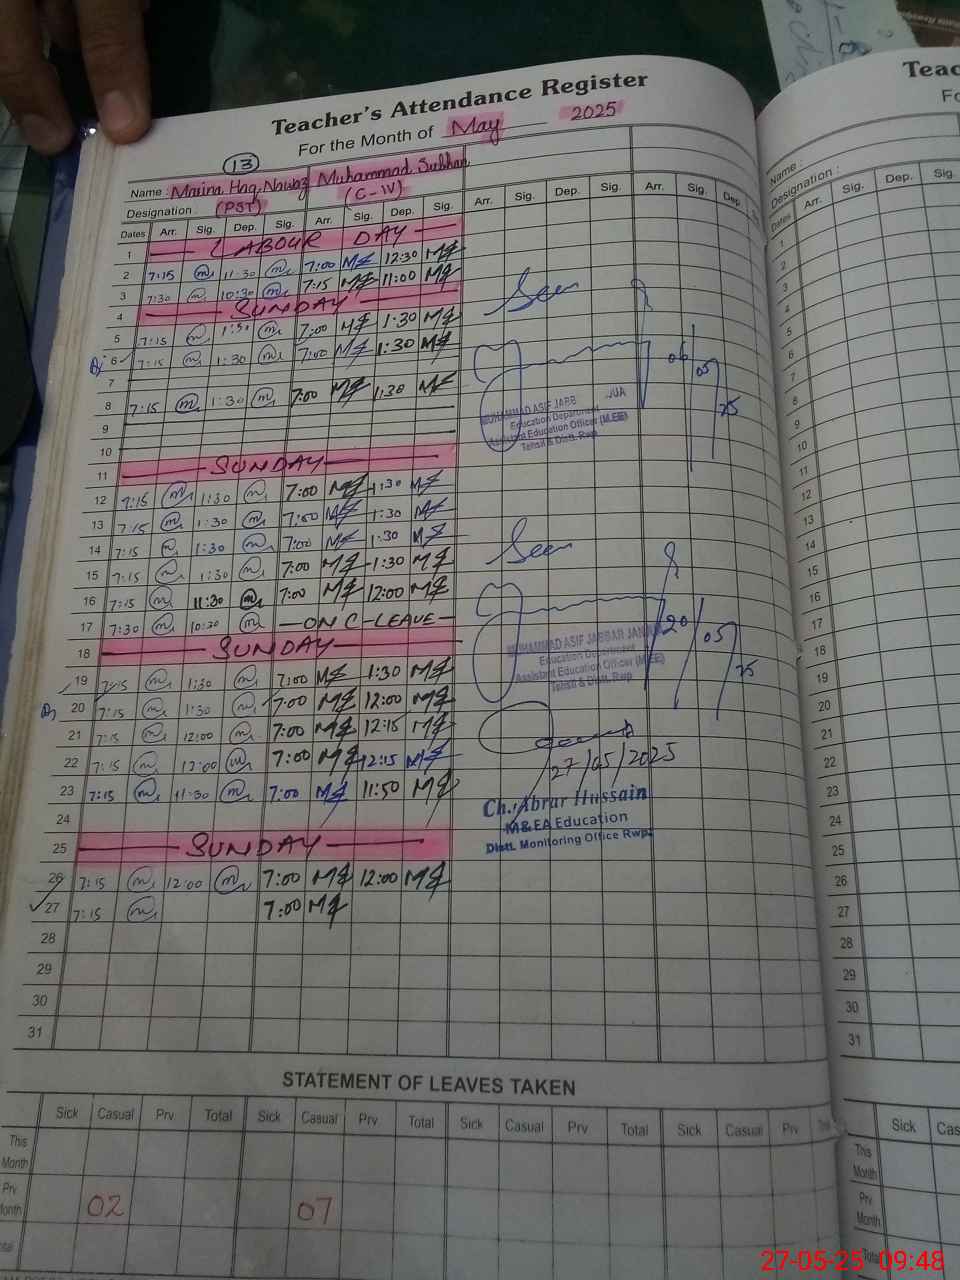 Teacher's Attendance Register
For the Month of May 2025
13
Name : Haq Nawaz Muhammad Subhan
Designation : (PST) (C-IV)
Dates Arr. Sig. Dep. Sig. Arr. Sig. Dep. Sig. Arr. Sig. Dep. Sig. Arr. Sig. Dep
1 LABOUR DAY
2 7:15 m 11:30 m 7:00 12:30
3 7:30 m 10:30 m 7:15 11:00
4 SUNDAY
5 7:15 m 1:30 m 7:00 1:30
6 7:15 m 1:30 m 7:00 1:30
7
8 7:15 m 1:30 m 7:00 1:30
9
10
11 SUNDAY
12 7:15 m 1:30 m 7:00 1:30
13 7:15 m 1:30 m 7:00 1:30
14 7:15 m 1:30 m 7:00 1:30
15 7:15 m 1:30 m 7:00 1:30
16 7:15 m 11:30 m 7:00 12:00
17 7:30 m 10:30 m ON C-LEAVE
18 SUNDAY
19 7:15 m 1:30 m 7:00 1:30
20 7:15 m 1:30 m 7:00 12:00
21 7:15 m 12:00 m 7:00 12:15
22 7:15 m 12:00 m 7:00 12:15
23 7:15 m 11:30 m 7:00 11:50
24
25 SUNDAY
26 7:15 m 12:00 m 7:00 12:00
27 7:15 m 7:00
28
29
30
31
Seen
06/05/25
MUHAMMAD ASIF JABB JUA
Education Department
Assistant Education Officer (M.EE)
Tehsil & Distt. Rwp
Seen
20/05/25
MUHAMMAD ASIF JABBAR JANJUA
Education Department
Assistant Education Officer (M.EE)
Tehsil & Distt. Rwp
27/05/2025
Ch. Abrar Hussain
M&EA Education
Distt. Monitoring Office Rwp.
STATEMENT OF LEAVES TAKEN
Sick Casual Prv Total Sick Casual Prv Total Sick Casual Prv Total Sick Casual Prv
This Month
Prv Month 02 07
Teac
Fo
Name :
Designation :
Dates Arr. Sig. Dep. Sig.
1
2
3
4
5
6
7
8
9
10
11
12
13
14
15
16
17
18
19
20
21
22
23
24
25
26
27
28
29
30
31
Sick Cas
This Month
Prv Month
Total
27-05-25 09:48